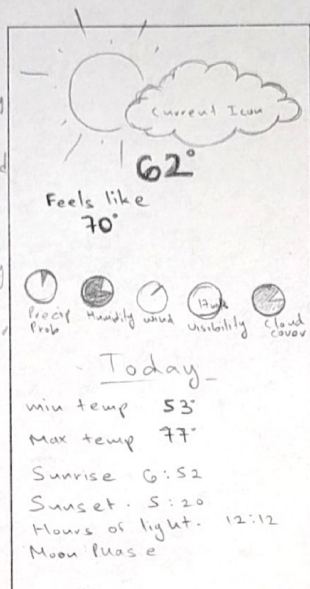 Current Icon
62°
Feels like
70°
17mls
Precip Prob
Humidity
Wind
Visibility
Cloud cover
Today
min temp 53°
Max temp 77°
Sunrise 6:52
Sunset. 5:20
Hours of light. 12:12
Moon Phase